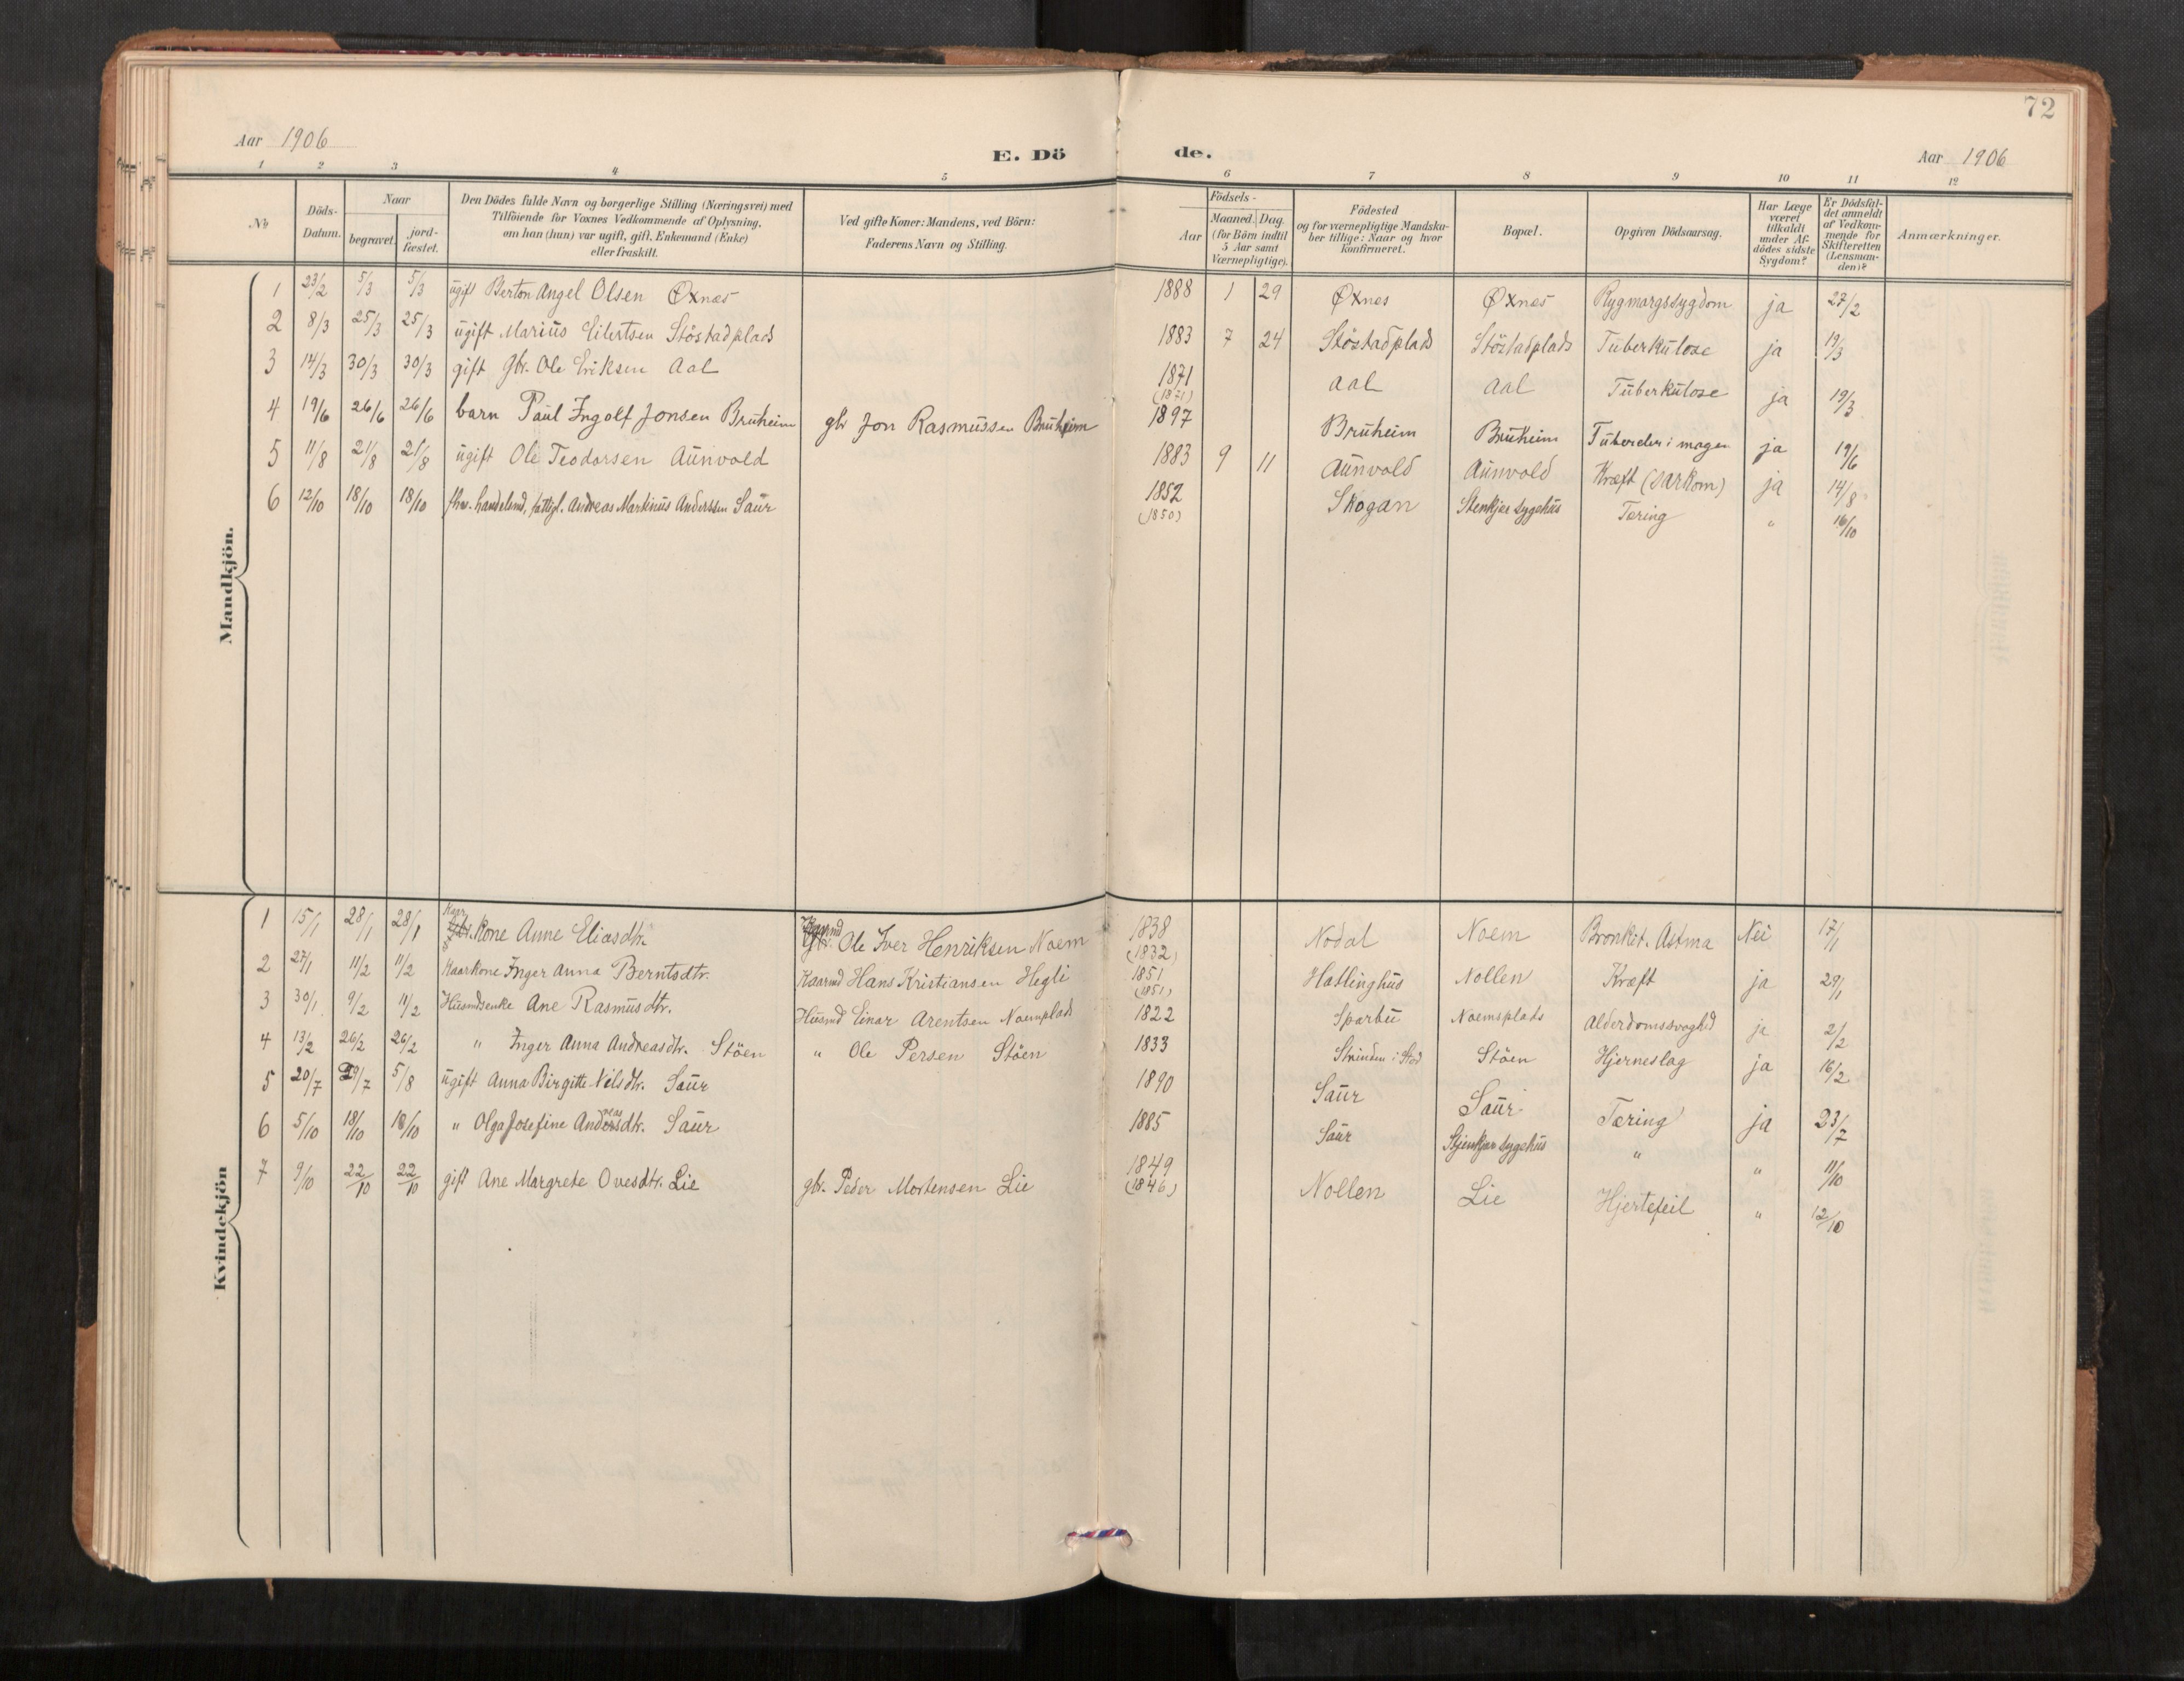 72
Aar 1906
E. Dö
de.
Aar 1906
1 2 3 4 5 6 7 8 9 10 11 12
No
Döds-Datum.
Naar
begravet.
jord-fæstet.
Den Dödes fulde Navn og borgerlige Stilling (Næringsvei) med
Tilföiende for Voxnes Vedkommende af Oplysning,
om han (hun) var ugift, gift, Enkemand (Enke)
eller fraskilt.
Ved gifte Koner: Mandens, ved Börn:
Faderens Navn og Stilling.
Födsels-
Aar
Maaned. Dag.
(for Börn indtil
5 Aar samt
Værnepligtige).
Födested
og for værnepligtige Mandska-
ber tillige: Naar og hvor
konfirmeret.
Bopæl.
Opgiven Dödsaarsag.
Har Læge
været
tilkaldt
under Af-
dödes sidste
Sygdom?
Er Dödsfal-
det anmeldt
af Vedkom-
mende for
Skifteretten
(Lensman-
den)?
Anmærkninger.
Mandkjön.
1 23/2 5/3 5/3 ugift Berton Angel Olsen Øxnes 1888 1 29 Øxnes Øxnes Rygmargssygdom ja 27/2
2 8/3 25/3 25/3 ugift Marius Eilertsen Stöstadplads 1883 7 24 Stöstadplads Stöstadplads Tuberkulose ja 19/3
3 14/3 30/3 30/3 gift Gbr. Ole Eriksen Aal 1871 (1871) Aal Aal Tuberkulose ja 19/3
4 19/6 26/6 26/6 barn Paul Ingolf Jonsen Bruheim gbr Jon Rasmussen Bruheim 1897 Bruheim Bruheim Tubereler i magen ja 19/6
5 11/8 21/8 21/8 ugift Ole Teodorsen Aunvold 1883 9 11 Aunvold Aunvold Kræft (sarkom) ja 14/8
6 12/10 18/10 18/10 fhv. handelsmd, fattigl. Andreas Martinus Anderssen Saur 1852 (1850) Skogan Stenkjer sygehus Tæring " 16/10
Kvindekjön
1 15/1 28/1 28/1 Kaar Kone Anne Eliasdtr. Kaarmd Ole Iver Henriksen Noem 1838 (1832) Nodal Noem Bronkit. Astma Nei 17/1
2 27/1 11/2 11/2 Kaarkone Inger Anna Berntsdtr. Kaarmd Hans Kristiansen Hegli 1851 (1851) Hatlinghus Nollen Kræft ja 29/1
3 30/1 9/2 11/2 Husmdsenke Ane Rasmusdtr. Husmd Einar Arentsen Noemplads 1822 Sparbu Noemsplads Alderdomssvaghed ja 2/2
4 13/2 26/2 26/2 " Inger Anna Andreasdtr. Stöen " Ole Persen Stöen 1833 Strinden i Stod Stöen Hjerneslag ja 16/2
5 20/7 29/7 5/8 ugift Anna Birgitte Nilsdtr. Saur 1890 Saur Saur Tæring ja 23/7
6 5/10 18/10 18/10 " Olga Josefine Andreasdtr. Saur 1885 Saur Stjenkjær sygehus " " 11/10
7 9/10 22/10 22/10 gift Ane Margrete Ovesdtr. Lie gbr. Peder Mortensen Lie 1849 (1846) Nollen Lie Hjertefeil " 12/10